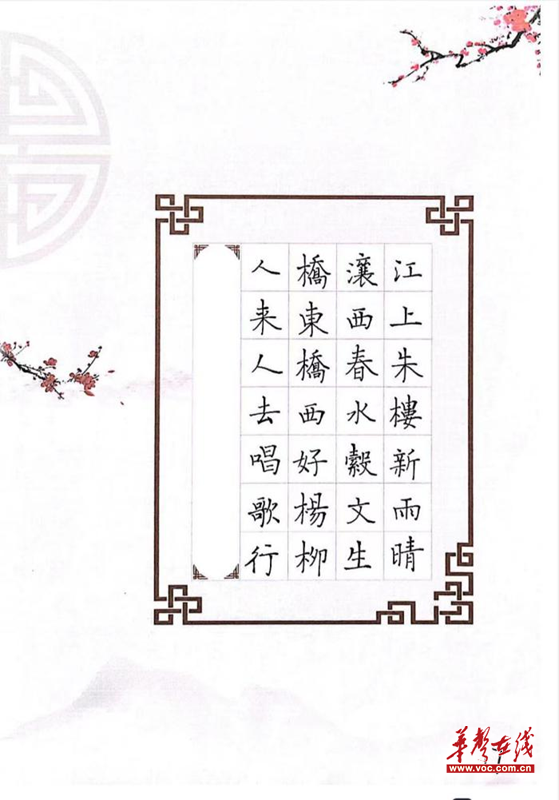 江上朱樓新雨晴
瀼西春水縠文生
橋東橋西好楊柳
人来人去唱歌行
华声在线
www.voc.com.cn